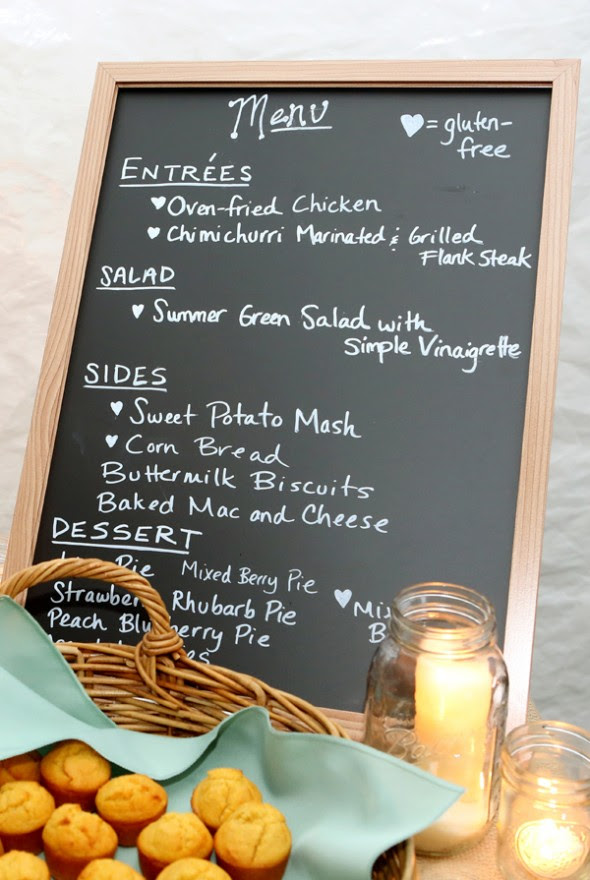 Menu
♥ = gluten-
free
ENTRÉES
♥ Oven-fried Chicken
♥ Chimichurri Marinated & Grilled
Flank Steak
SALAD
♥ Summer Green Salad with
Simple Vinaigrette
SIDES
♥ Sweet Potato Mash
♥ Corn Bread
Buttermilk Biscuits
Baked Mac and Cheese
DESSERT
Pie Mixed Berry Pie
Rhubarb Pie
Peach Pie
Ball